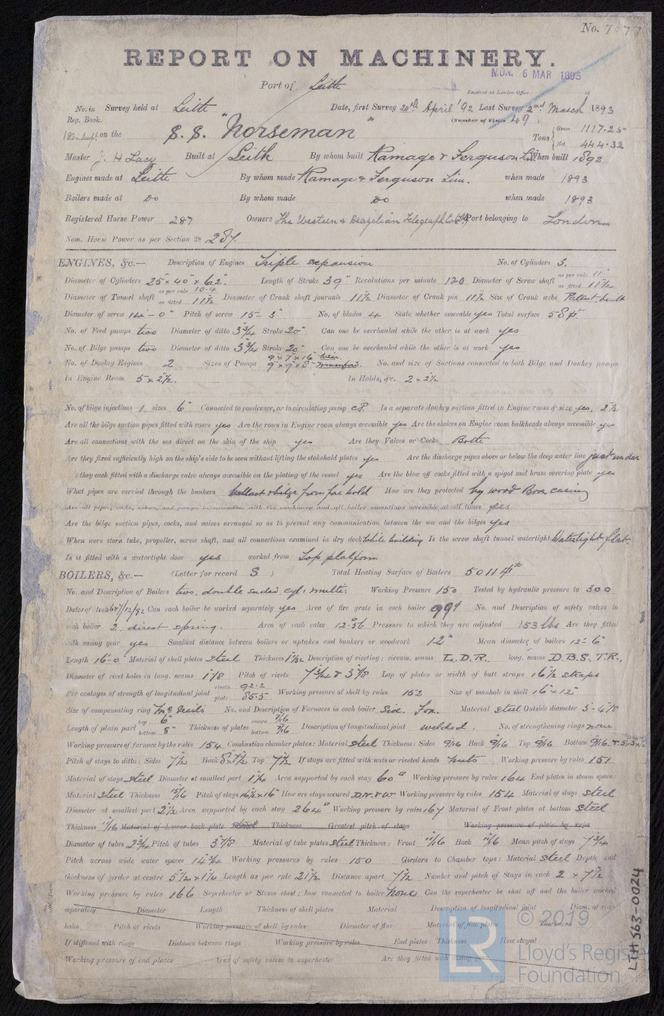 No. 7
REPORT ON MACHINERY.
Port of Leith
MON. 6 MAR 1893
Received at London Office
No. in Survey held at Leith Date, first Survey 20th April '92 Last Survey 2nd March 1893
Reg. Book. (Number of Visits 49)
on the S.S. "Norseman" Tons Gross 1117.25 Net 444.32
Master J. H. Lacy Built at Leith By whom built Ramage & Ferguson Lim When built 1892
Engines made at Leith By whom made Ramage & Ferguson Lim. when made 1893
Boilers made at Do By whom made Do when made 1893
Registered Horse Power 287 Owners The Western & Brazilian Telegraph Co Port belonging to London
Nom. Horse Power as per Section 28 287
ENGINES, &c.— Description of Engines Triple expansion No. of Cylinders 3.
Diameter of Cylinders 25" 40" & 62" Length of Stroke 39" Revolutions per minute 120 Diameter of Screw shaft as per rule 11" as fitted 11 1/2
Diameter of Tunnel shaft as per rule 10.9 as fitted 11 1/2 Diameter of Crank shaft journals 11 1/2 Diameter of Crank pin 11 1/2 Size of Crank webs Patent built
Diameter of screw 14-0" Pitch of screw 15-3" No. of blades 4 State whether moveable yes Total surface 58 ft
No. of Feed pumps two Diameter of ditto 3 3/4 Stroke 20" Can one be overhauled while the other is at work yes
No. of Bilge pumps two Diameter of ditto 3 3/4 Stroke 20" Can one be overhauled while the other is at work yes
No. of Donkey Engines 2 Sizes of Pumps No. and size of Suctions connected to both Bilge and Donkey pumps
In Engine Room 5 x 2 1/2. In Holds, &c. 2 x 2 1/2
No. of bilge injections 1 sizes 6" Connected to condenser, or to circulating pump CP Is a separate donkey suction fitted in Engine room & size yes, 2 1/2
Are all the bilge suction pipes fitted with roses yes Are the roses in Engine room always accessible yes Are the sluices on Engine room bulkheads always accessible yes
Are all connections with the sea direct on the skin of the ship yes Are they Valves or Cocks Both
Are they fixed sufficiently high on the ship's side to be seen without lifting the stokehold plates yes Are the discharge pipes above or below the deep water line just under
they each fitted with a discharge valve always accessible on the plating of the vessel yes Are the blow off cocks fitted with a spigot and brass covering plate yes
What pipes are carried through the bunkers ballast & bilge from fore hold How are they protected by wood Box casing
Are all pipes, cocks, valves, and pumps in connection with the machinery and all boiler mountings accessible at all times yes
Are the bilge suction pipes, cocks, and valves arranged so as to prevent any communication between the sea and the bilges yes
When were stern tube, propeller, screw shaft, and all connections examined in dry dock while building Is the screw shaft tunnel watertight Watertight flat
Is it fitted with a watertight door yes worked from Top platform
BOILERS, &c.— (Letter for record S) Total Heating Surface of Boilers 5011 ft
No. and Description of Boilers two, double ended cyl: multr. Working Pressure 150 Tested by hydraulic pressure to 300
Date of test Can each boiler be worked separately yes Area of fire grate in each boiler 99 No. and Description of safety valves to
each boiler 2 direct spring. Area of each valve 12.56 Pressure to which they are adjusted 153 lbs Are they fitted
with easing gear yes Smallest distance between boilers or uptakes and bunkers or woodwork 12" Mean diameter of boilers 12-6"
Length 16-0" Material of shell plates Steel Thickness Description of riveting: circum. seams L.D.R. long. seams D.B.S. T.R.,
Diameter of rivet holes in long. seams 1 1/8 Pitch of rivets Lap of plates or width of butt straps 16 1/2 straps
Per centages of strength of longitudinal joint rivets 92.2 plate 85.5 Working pressure of shell by rules 152 Size of manhole in shell 16" x 12"
Size of compensating ring McNeils No. and Description of Furnaces in each boiler Six. Fox. Material Steel Outside diameter
Length of plain part top 6" bottom 8" Thickness of plates crown 7/16 bottom 7/16 Description of longitudinal joint welded. No. of strengthening rings none
Working pressure of furnace by the rules 154 Combustion chamber plates: Material Steel Thickness: Sides 9/16 Back 9/16 Top 9/16 Bottom 9/16
Pitch of stays to ditto: Sides 7 1/2 Back Top 7 1/2 If stays are fitted with nuts or riveted heads nuts Working pressure by rules 151
Material of stays Steel Diameter at smallest part Area supported by each stay 60" Working pressure by rules 164 End plates in steam space:
Material Steel Thickness Pitch of stays How are stays secured D.N. & W Working pressure by rules 154 Material of stays Steel
Diameter at smallest part 2 1/2 Area supported by each stay 264" Working pressure by rules 167 Material of Front plates at bottom Steel
Thickness Material of Lower back plate Steel Thickness Greatest pitch of stays Working pressure of plate by rules
Diameter of tubes Pitch of tubes Material of tube plates Steel Thickness: Front Back Mean pitch of stays
Pitch across wide water spaces Working pressures by rules 150 Girders to Chamber tops: Material Steel Depth and
thickness of girder at centre Length as per rule 21 1/2 Distance apart 7 1/2 Number and pitch of Stays in each 2 x 7 1/2
Working pressure by rules 166 Superheater or Steam chest; how connected to boiler None Can the superheater be shut off and the boiler worked
separately Diameter Length Thickness of shell plates Material Description of longitudinal joint Diam. of rivet
holes Pitch of rivets Working pressure of shell by rules Diameter of flue Material of flue plates Thickness
If stiffened with rings Distance between rings Working pressure by rules End plates: Thickness How stayed
Working pressure of end plates Area of safety valves to superheater Are they fitted with
LTH 563-0024
© 2019
LR
Lloyd's Register
Foundation